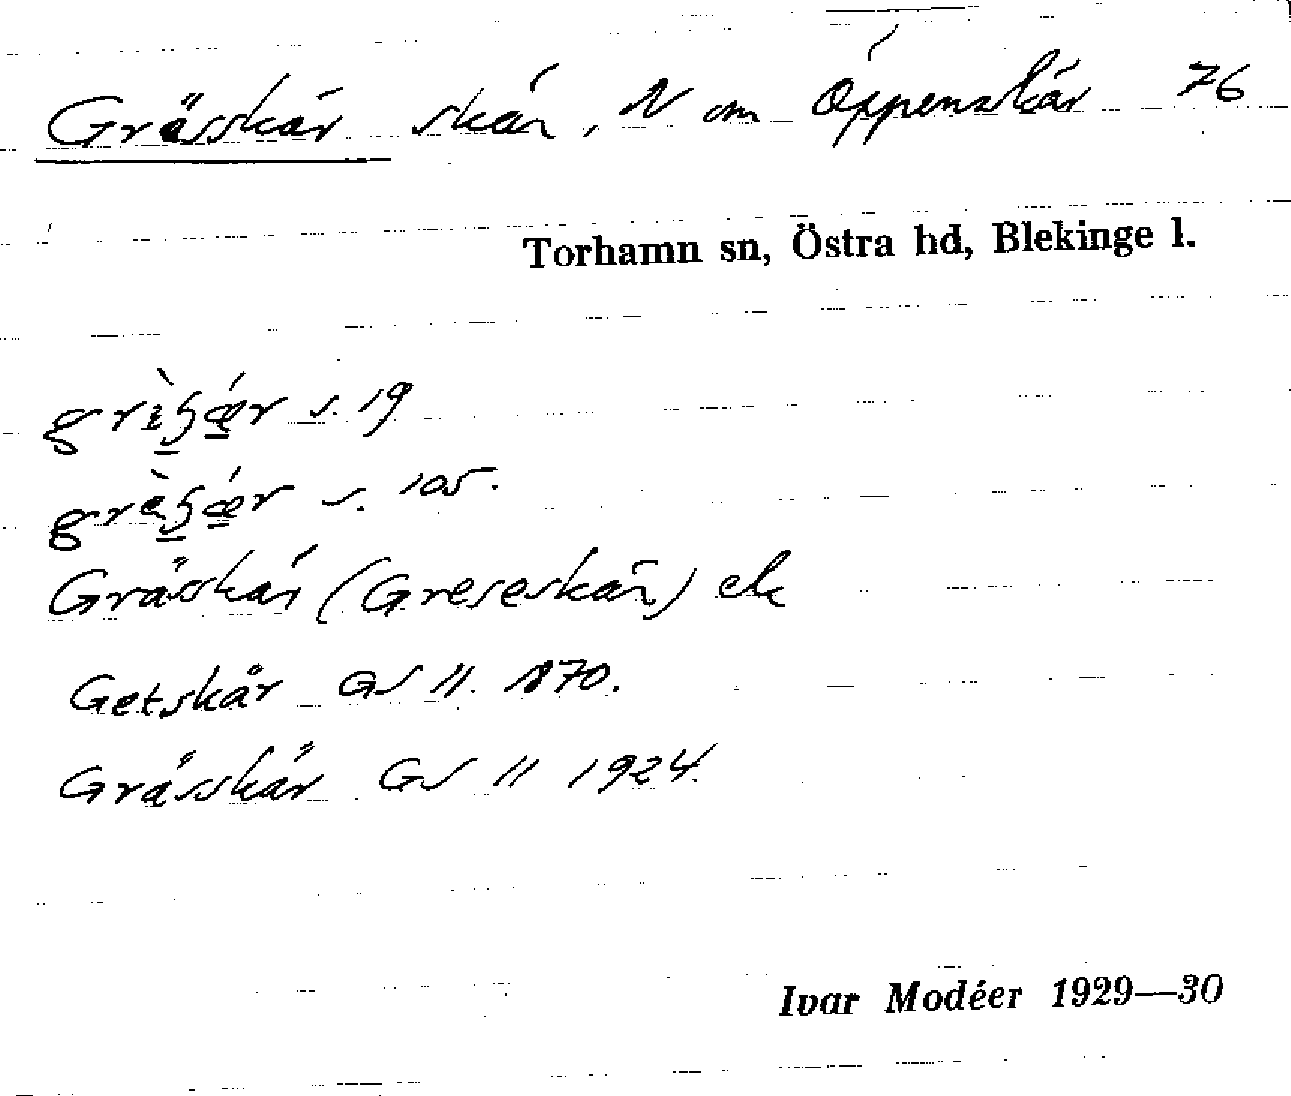 Grässkär skär, N om Öppenskär 76
Torhamn sn, Östra hd, Blekinge l.
s. 19
s. 105.
Grässkär (Greseskär) ek
Getskär GS 11. 1870.
Grässkär GS 11 1924.
Ivar Modéer 1929—30